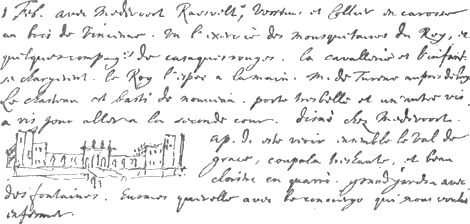 1 Feb. avec Mederoort Rasvelt, Vorstius et Collier en carosse
au bois de Vincennes. Vu l'exercice des mousquetaires du Roy, et
quelques compag: de casaques rouges. la cavallerie et l'infant:
se chargeoient. le Roy l'espee a la main. M. de Turenne aupres de luy
Le chasteau est basti de nouveau. porte tresbelle et un autre vis
a vis pour aller a la seconde cour. disné chez Mederoort.
ap. d. este voir ensemble le Val de
grace, coupola tres haute, et beau
cloistre en quarré. grand jardin avec
des fontaines. Eusmes querelle avec le concierge qui nous voulut
enfermer.